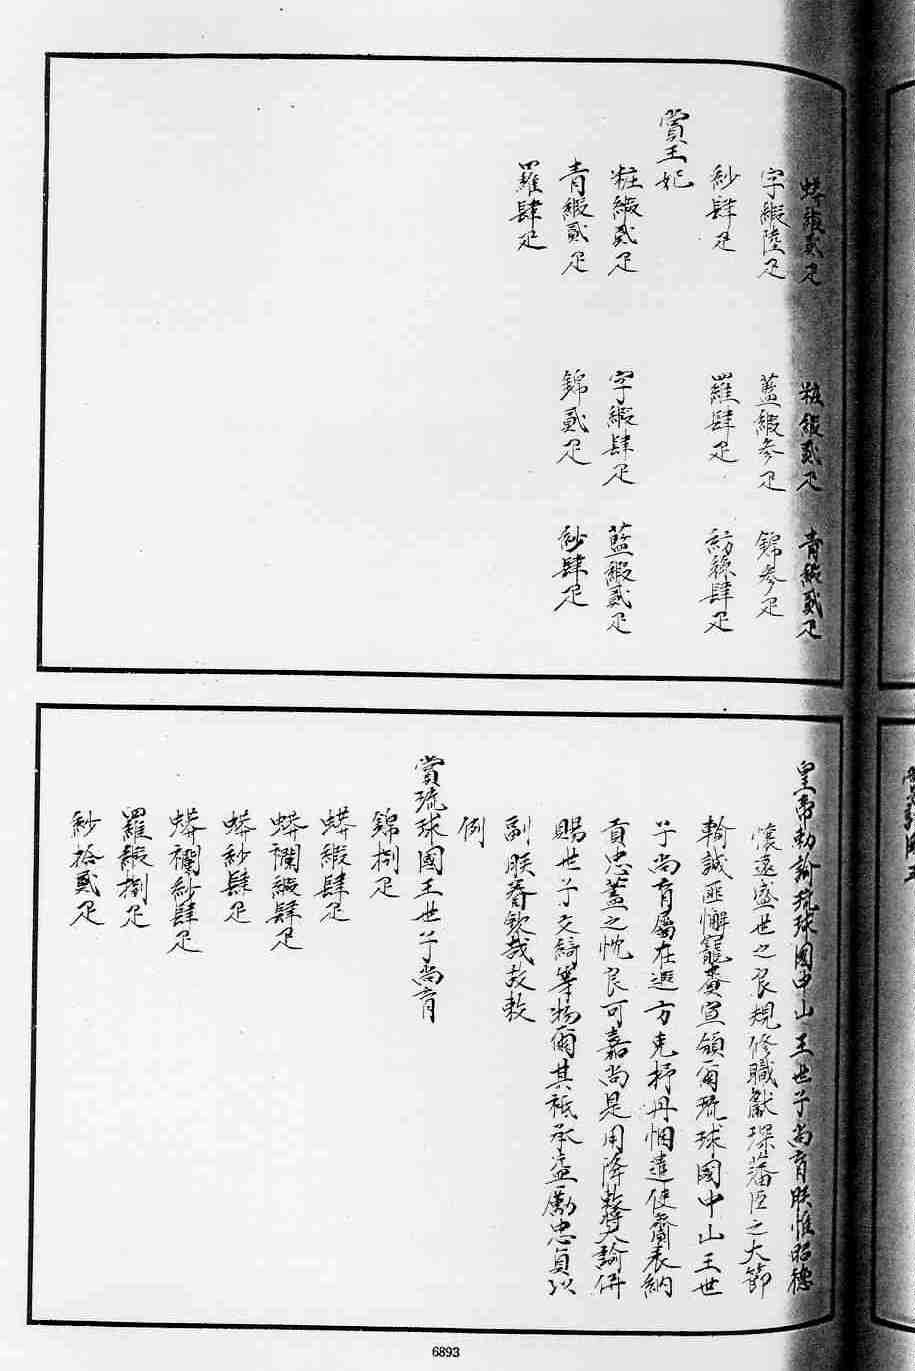 蟒緞貳疋 粧緞貳疋 青緞貳疋
字緞陸疋 藍緞參疋 錦參疋
紗肆疋 羅肆疋 紡絲肆疋
賞王妃
粧緞貳疋 字緞肆疋 藍緞貳疋
青緞貳疋 錦貳疋 紗肆疋
羅肆疋
皇帝勅諭琉球國中山王世子尚育朕惟昭德
懷遠盛世之良規修職獻琛藩臣之大節
輸誠匪懈寵賚宣頒爾琉球國中山王世
子尚育屬在遐方克抒丹悃遣使齎表納
貢忠藎之忱良可嘉尚是用降敕獎諭併
賜世子文綺等物爾其祗承益勵忠貞以
副朕眷欽哉故敕
例
賞琉球國王世子尚育
錦捌疋
蟒緞肆疋
蟒襴緞肆疋
蟒紗肆疋
蟒襴紗肆疋
羅緞捌疋
紗拾貳疋
6893